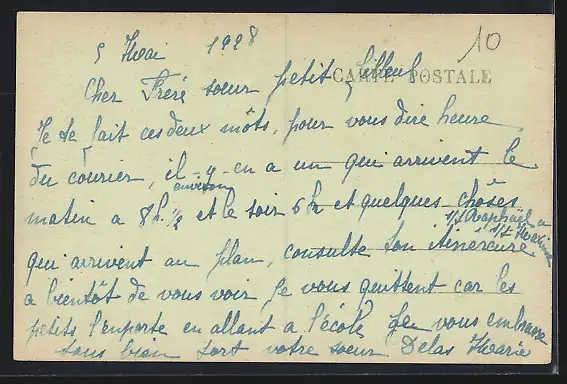 5 Mai 1928
10
CARTE POSTALE
Cher Frère soeur petit filleul
Je te fait ces deux môts, pour vous dire heure
du courier, il-y-en a un qui arrivent le
environ
matin a 8h ½ et le soir 6h et quelques chôses
qui arrivent au plan, consulte ton itinereure
1/2 Raphael a
1/2 Maxime
a bientôt de vous voir Je vous quittent car les
petits l'emporte en allant a l'école Je vous embrasse
tous bien fort votre soeur Delas Marie